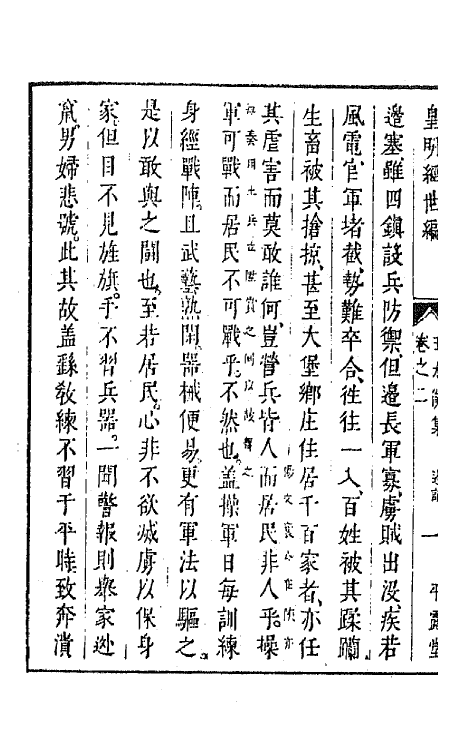 皇明經世編
卷之二
一
平露堂
邉塞雖四鎮設兵防禦但邉長軍寡虜賊出没疾若
風電官軍堵截勢難卒合徃徃一入百姓被其蹂躪
生畜被其搶掠甚至大堡鄉庄住居千百家者亦任
其虐害而莫敢誰何豈營兵皆人而居民非人乎操
軍可戰而居民不可戰乎不然也盖操軍日每訓練
身經戰陣且武藝熟閑器械便易更有軍法以驅之
是以敢與之鬪也至若居民心非不欲滅虜以保身
家但目不見旌旗手不習兵器一聞警報則舉家逃
竄男婦悲號此其故盖繇敎練不習于平時致奔潰